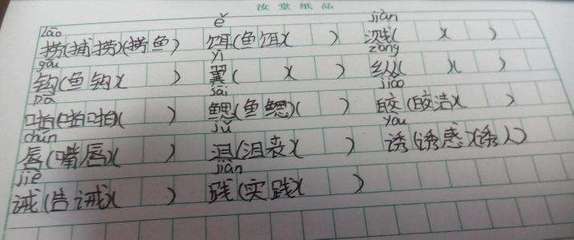 汝堂纸品
lāo ě jiàn
捞(捕捞)(捞鱼) 饵(鱼饵)( ) 溅( )( )
gōu yì zòng
钩(鱼钩)( ) 翼( )( ) 纵( )( )
pā sāi jiǎo
啪(啪啪)( ) 鳃(鱼鳃)( ) 皎(皎洁)( )
chún jǔ yòu
唇(嘴唇)( ) 沮(沮丧)( ) 诱(诱惑)(诱人)
jiè jiàn
诫(告诫)( ) 践(实践)( )